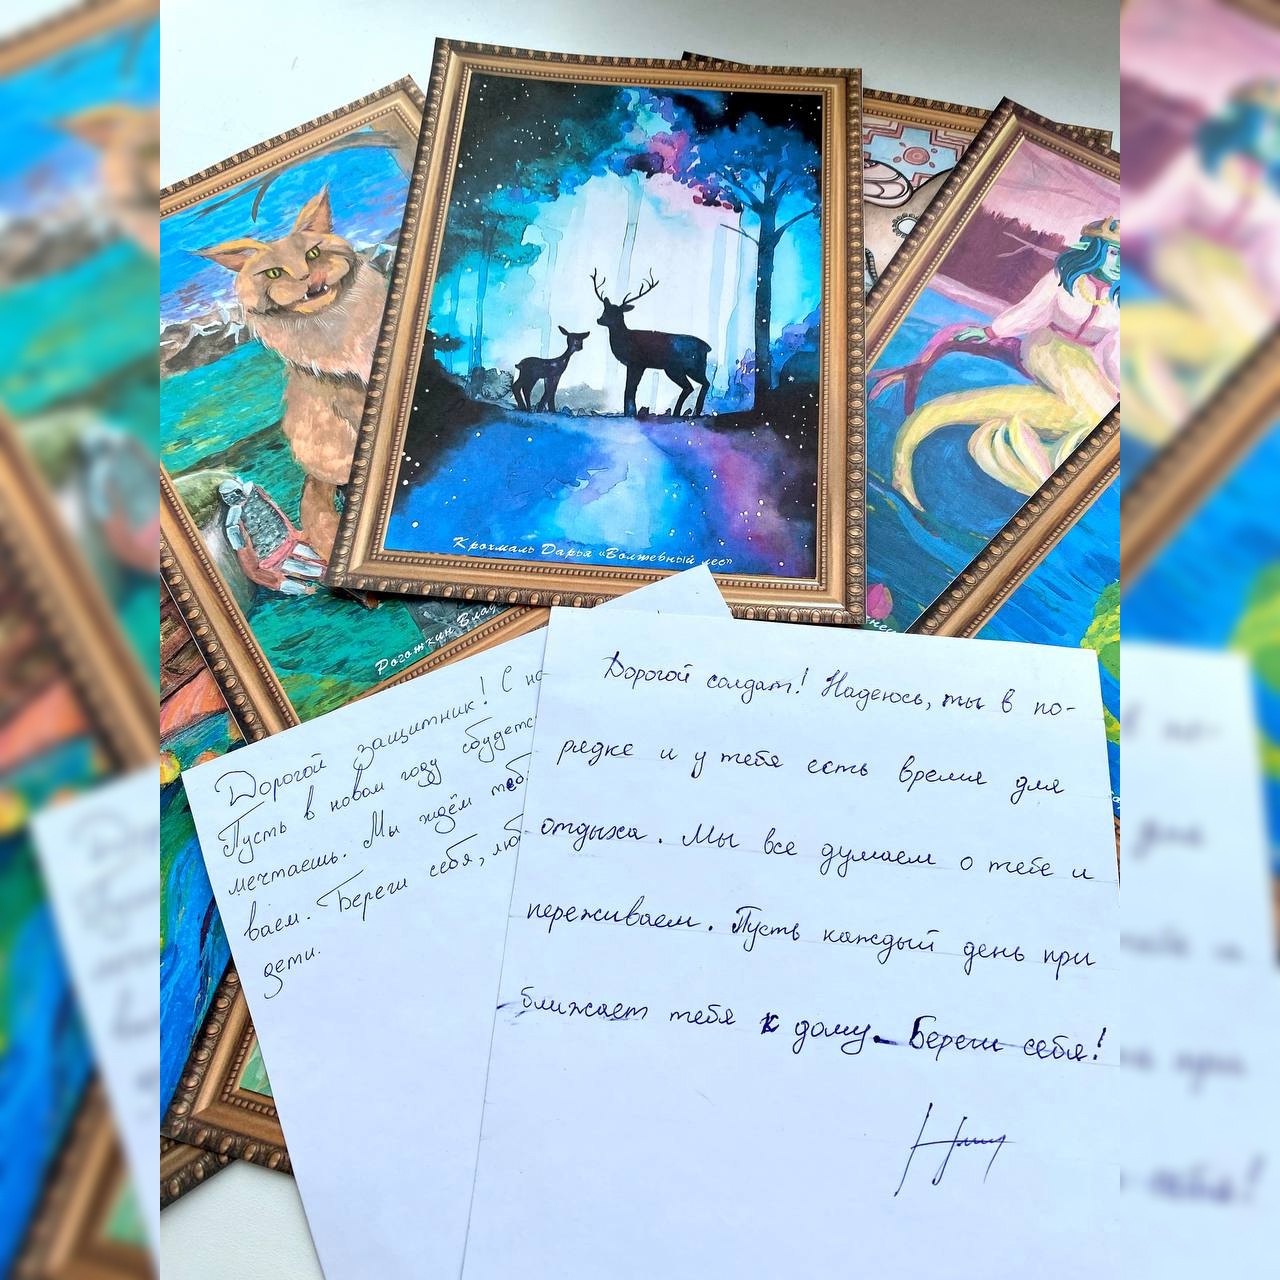 Крохмаль Дарья «Волшебный лес»
Рогожкин Влад
Дорогой защитник! С но
Пусть в новом году сбудетс
мечтаешь. Мы ждём теб
ваем. Береги себя, люб
дети.
Дорогой солдат! Надеюсь, ты в по-
рядке и у тебя есть время для
отдыха. Мы все думаем о тебе и
переживаем. Пусть каждый день при
ближает тебя к дому. Береги себя!